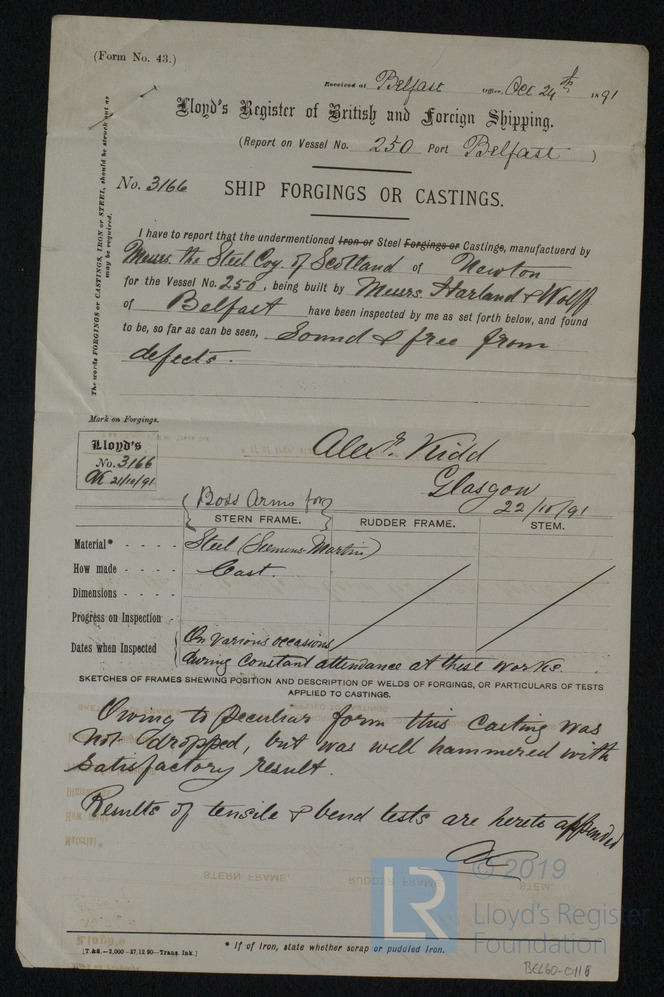 (Form No. 43.)
Received at Belfast Office, Oct 24th 1891
Lloyd's Register of British and Foreign Shipping.
(Report on Vessel No. 250 Port Belfast )
No. 3166 SHIP FORGINGS OR CASTINGS.
The words FORGINGS or CASTINGS, IRON or STEEL, should be struck out as
may be required.
I have to report that the undermentioned Iron or Steel Forgings or Castings, manufactuerd by
Messrs. the Steel Coy. of Scotland of Newton
for the Vessel No. 250, being built by Messrs Harland & Wolff
of Belfast have been inspected by me as set forth below, and found
to be, so far as can be seen, Sound & free from
defects.
Mark on Forgings.
Lloyd's
No. 3166
AK 21/10/91
Alexr. Kidd
Glasgow
22/10/91
Boss Arms for
STERN FRAME. RUDDER FRAME. STEM.
Material* - - - - Steel (Siemens-Martin)
How made - - - - Cast.
Dimensions - - - -
Progress on Inspection - -
Dates when Inspected On various occasions
during constant attendance at these works
SKETCHES OF FRAMES SHEWING POSITION AND DESCRIPTION OF WELDS OF FORGINGS, OR PARTICULARS OF TESTS
APPLIED TO CASTINGS.
Owing to peculiar form this casting was
not dropped, but was well hammered with
satisfactory result.
Results of tensile & bend tests are hereto appended
AK
© 2019
LR Lloyd's Register
Foundation
* If of Iron, state whether scrap or puddled Iron.
[T.&S.—2,000—27.12.90—Trans. Ink.]
BEL60-0118